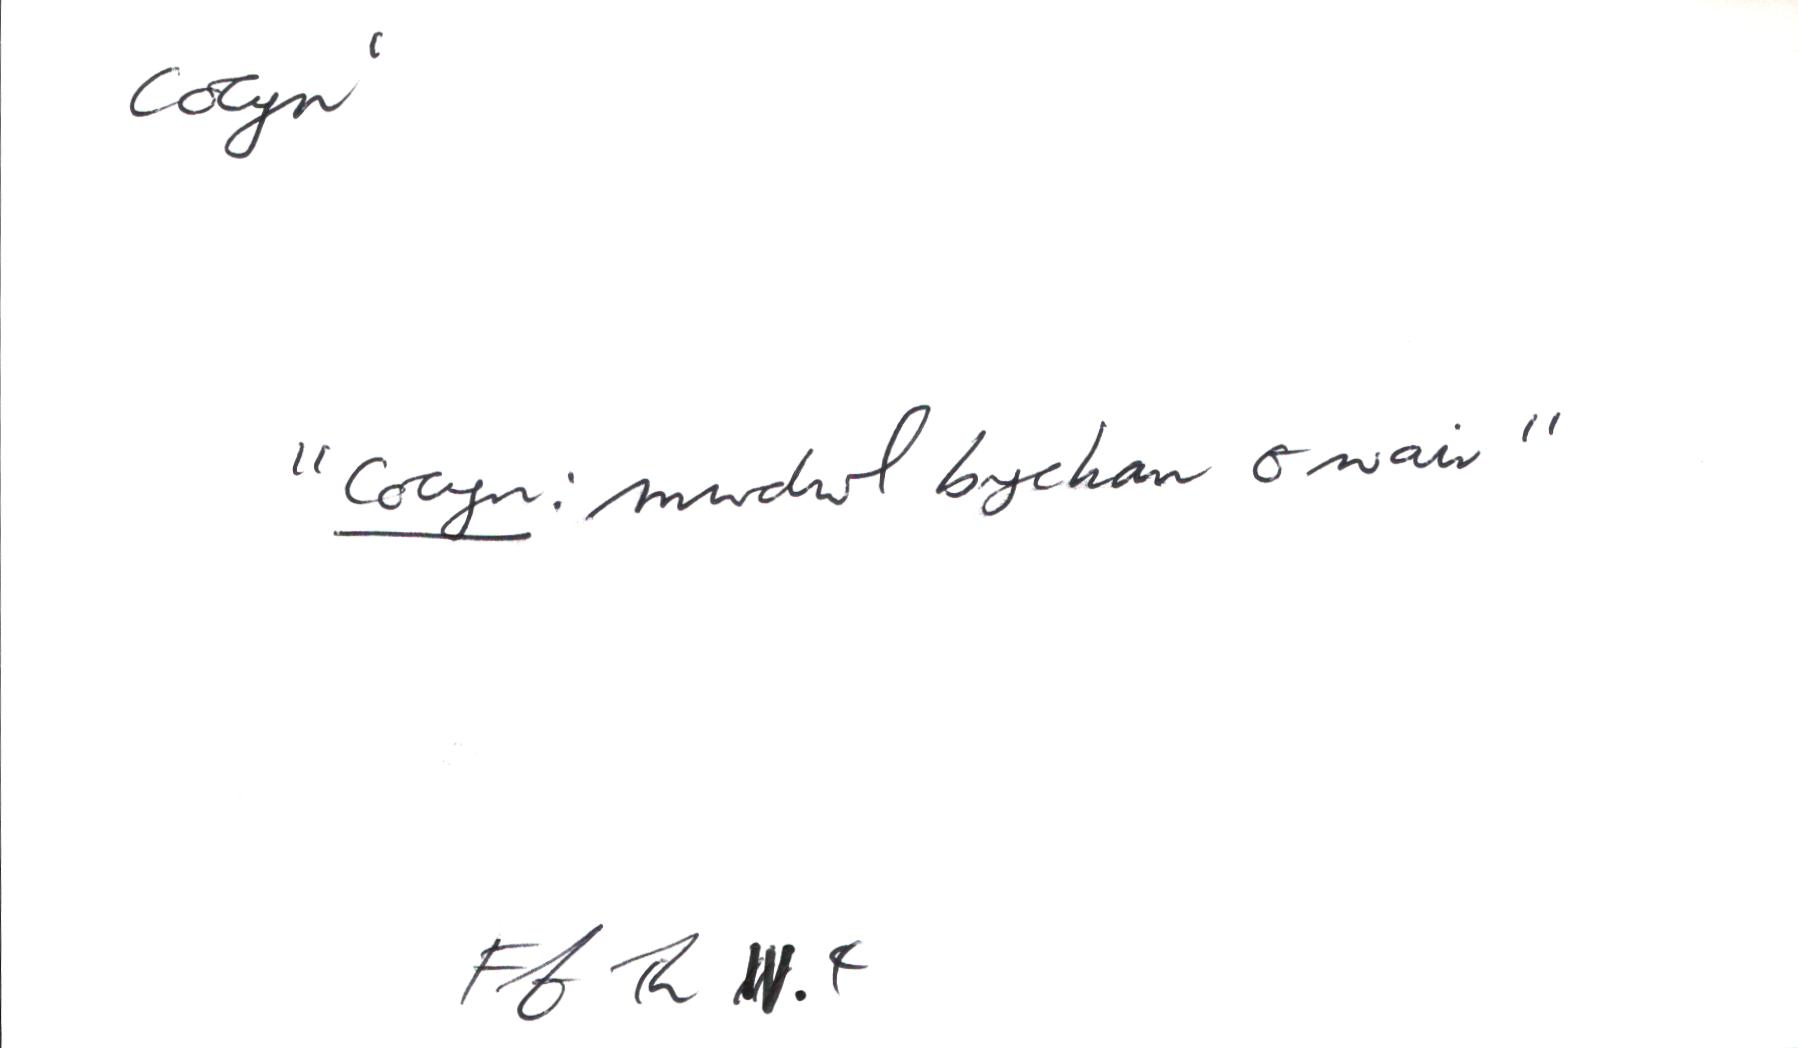 Cocyn'
"Cocyn: mwdwl bychan o wair"
Ff Th IV. 4